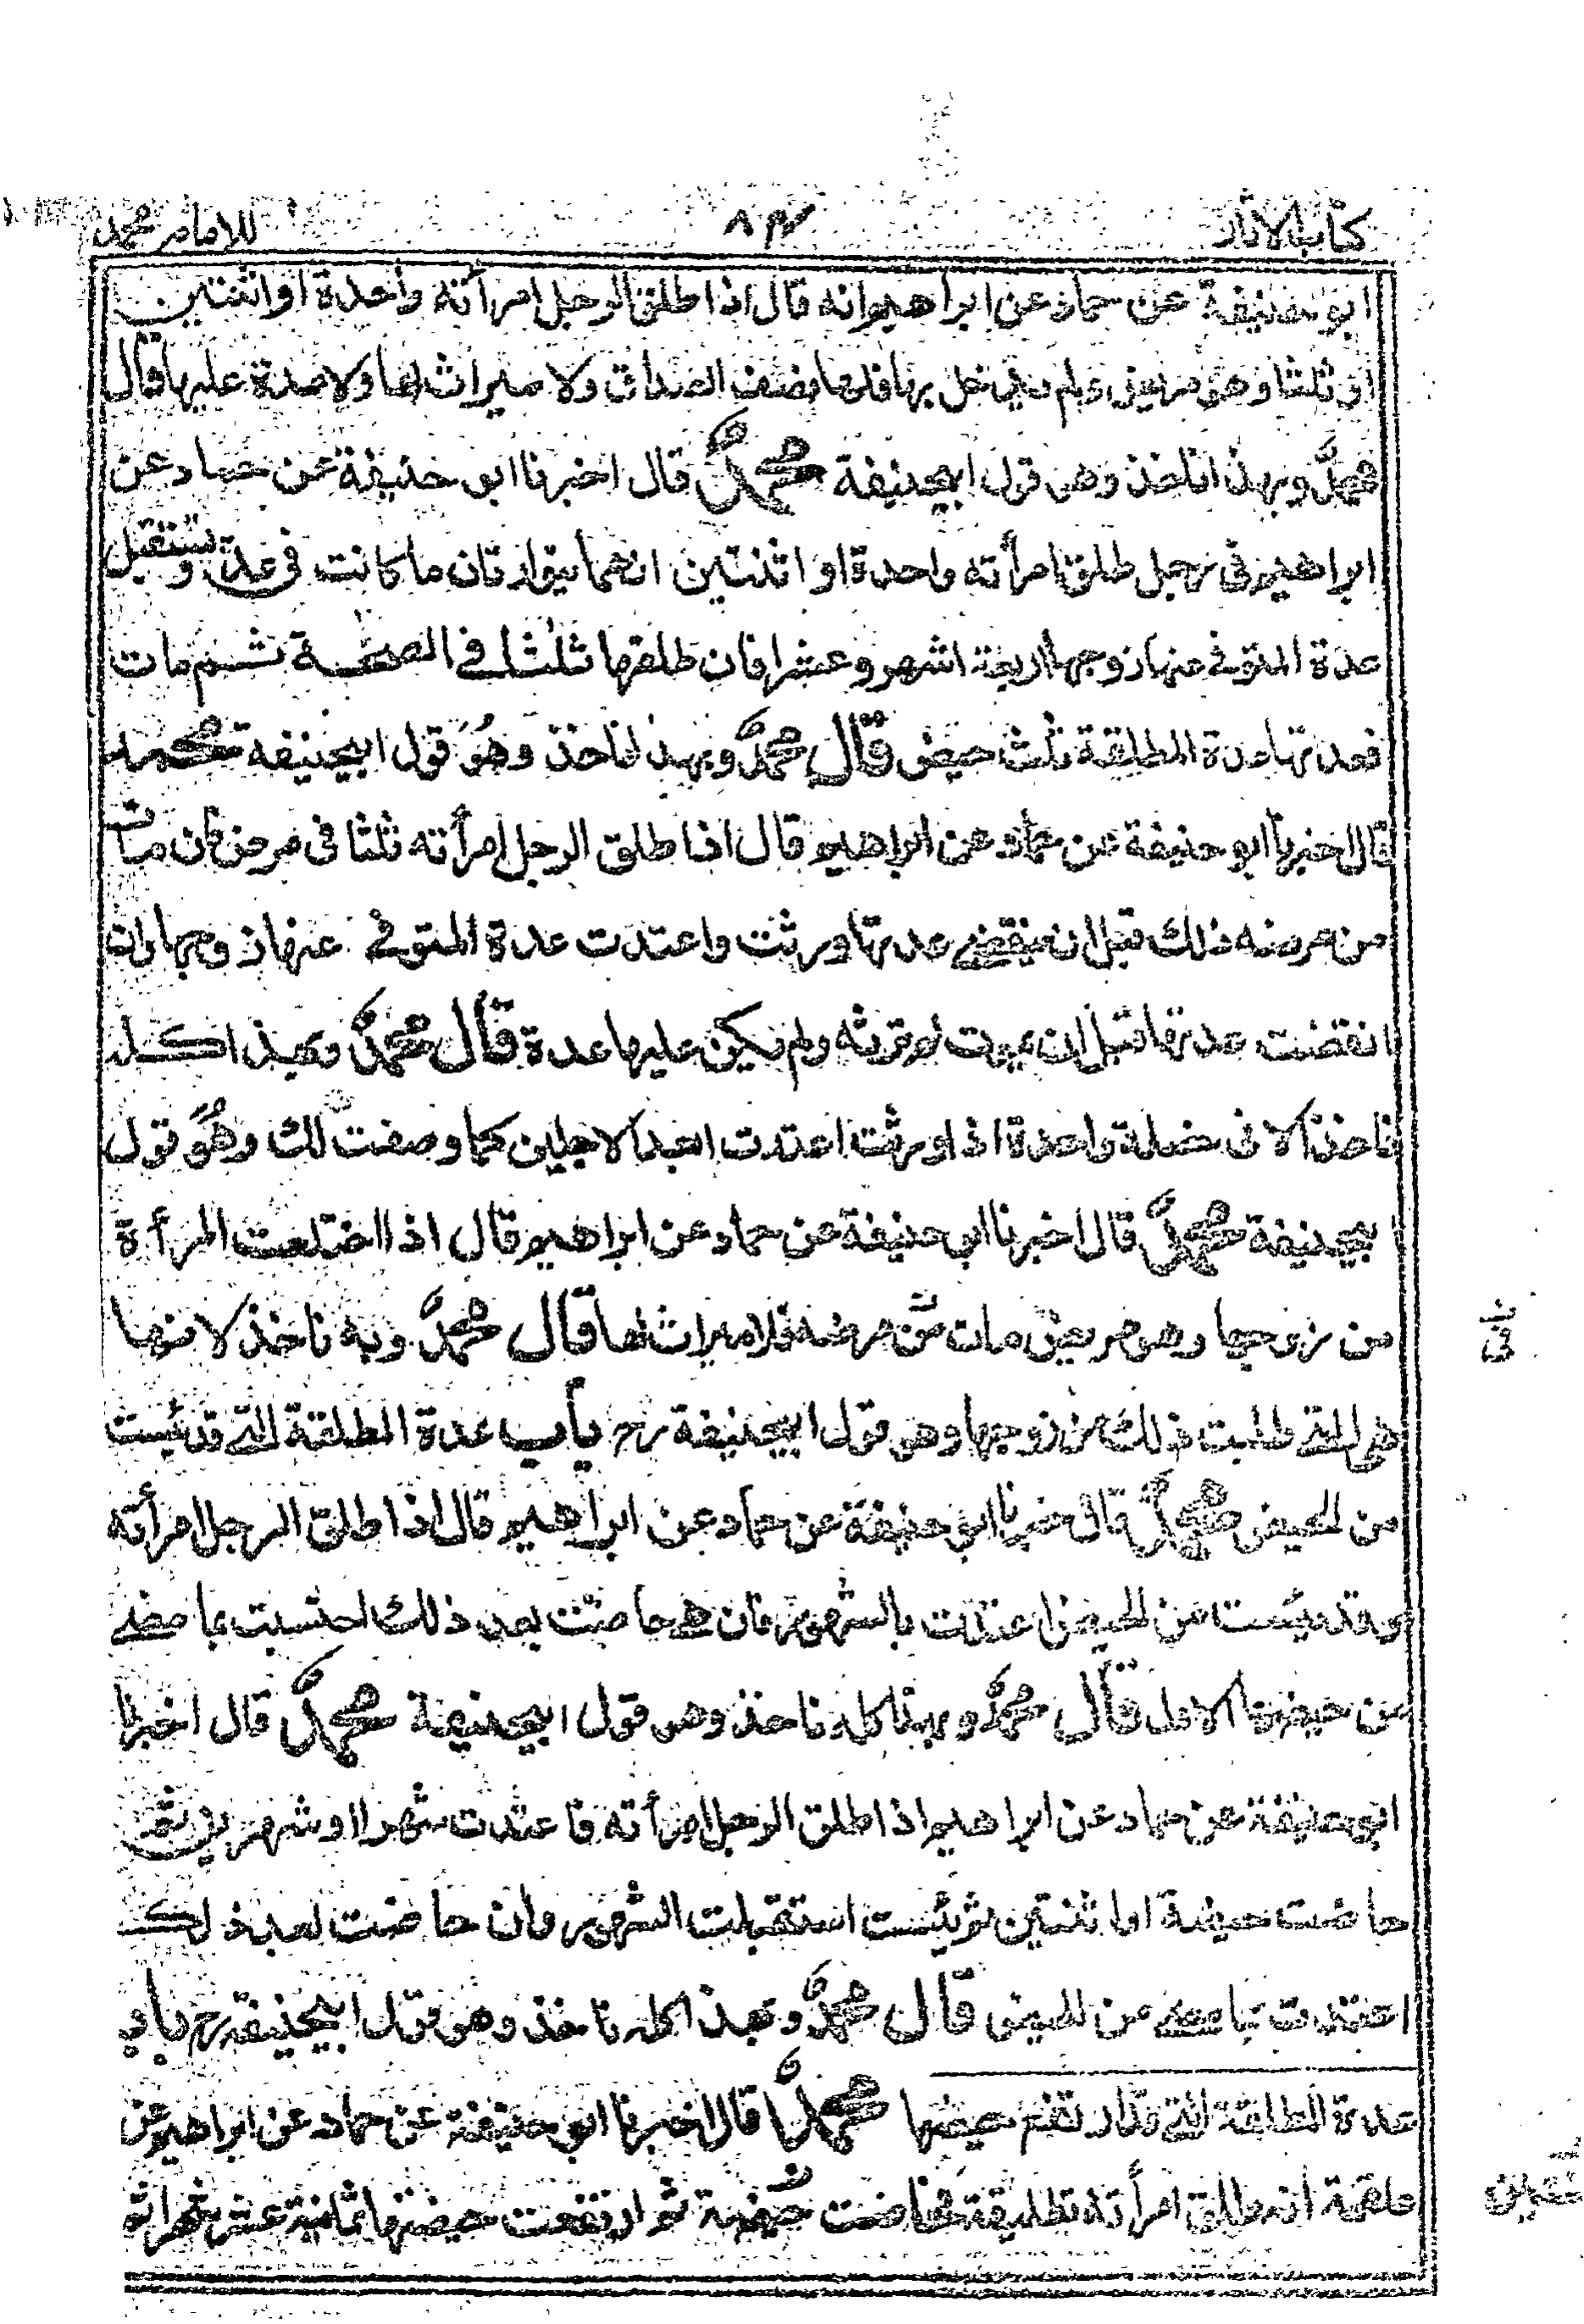 كتاب الاثار ٨٣ للامام محمد
ابو حنيفة عن حماد عن ابراهيم انه قال اذا طلق الرجل امرأته واحدة او اثنتين
او ثلثا وهو مريض ولم يدخل بها فلها نصف الصداق ولا ميراث لها ولا عدة عليها قال
محمد وبهذا ناخذ وهو قول ابيحنيفة محمد قال اخبرنا ابو حنيفة عن حماد عن
ابراهيم في رجل طلق امرأته واحدة او اثنتين انهما يتوارثان ما كانت في عدة وتستقبل
عدة المتوفى عنها زوجها اربعة اشهر وعشرا فان طلقها ثلثا في الصحة ثم مات
فعدتها عدة المطلقة ثلث حيض قال محمد وبهذا ناخذ وهو قول ابيحنيفة محمد
قال اخبرنا ابو حنيفة عن حماد عن ابراهيم قال اذا طلق الرجل امرأته ثلثا في مرض فان مات
من مرضه ذلك قبل ان ينقضي عدتها ورثت واعتدت عدة المتوفى عنها زوجها وان
انقضت عدتها قبل ان يموت لم ترثه ولم يكن عليها عدة قال محمد وبهذا كله
ناخذ الا في خصلة واحدة اذا ورثت اعتدت ابعد الاجلين كما وصفت لك وهو قول
ابيحنيفة محمد قال اخبرنا ابو حنيفة عن حماد عن ابراهيم قال اذا اختلعت المرأة
من زوجها وهو مريض مات من مرضه فلا ميراث لها قال محمد وبه ناخذ لانها
هي التي طلبت ذلك من زوجها وهو قول ابيحنيفة رح باب عدة المطلقة التي قد يئست
من الحيض محمد قال اخبرنا ابو حنيفة عن حماد عن ابراهيم قال اذا طلق الرجل امرأته
وقد يئست من الحيض اعتدت بالشهور فان هي حاضت بعد ذلك احتسبت بما مضى
من حيضها الاول قال محمد وبهذا كله ناخذ وهو قول ابيحنيفة محمد قال اخبرنا
ابو حنيفة عن حماد عن ابراهيم اذا طلق الرجل امرأته فاعتدت شهرا او شهرين ثم
حاضت حيضة او اثنتين ثم يئست استقبلت الشهور وان حاضت بعد ذلك
اعتدت بما مضى من الحيض قال محمد وبهذا كله ناخذ وهو قول ابيحنيفة رح باب
عدة المطلقة التي قد ارتفع حيضها محمد قال اخبرنا ابو حنيفة عن حماد عن ابراهيم عن
علقمة انه طلق امرأته تطليقة فحاضت حيضة ثم ارتفعت حيضتها ثمانية عشر شهرا ثم